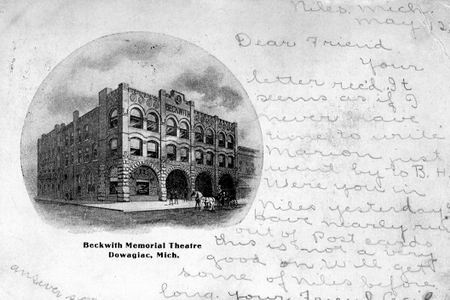 Niles, Mich.
May, 12
Dear Friend
Your
letter rec'd. It
seems as if I
never have
time to write
Marion just
went by to B. H
Were you in
Niles yesterday
Have nearly run
out of Post cards
this is not a very
good one will get
some of Niles before
long. Your Friend
answer soon
BECKWITH
Beckwith Memorial Theatre
Dowagiac, Mich.